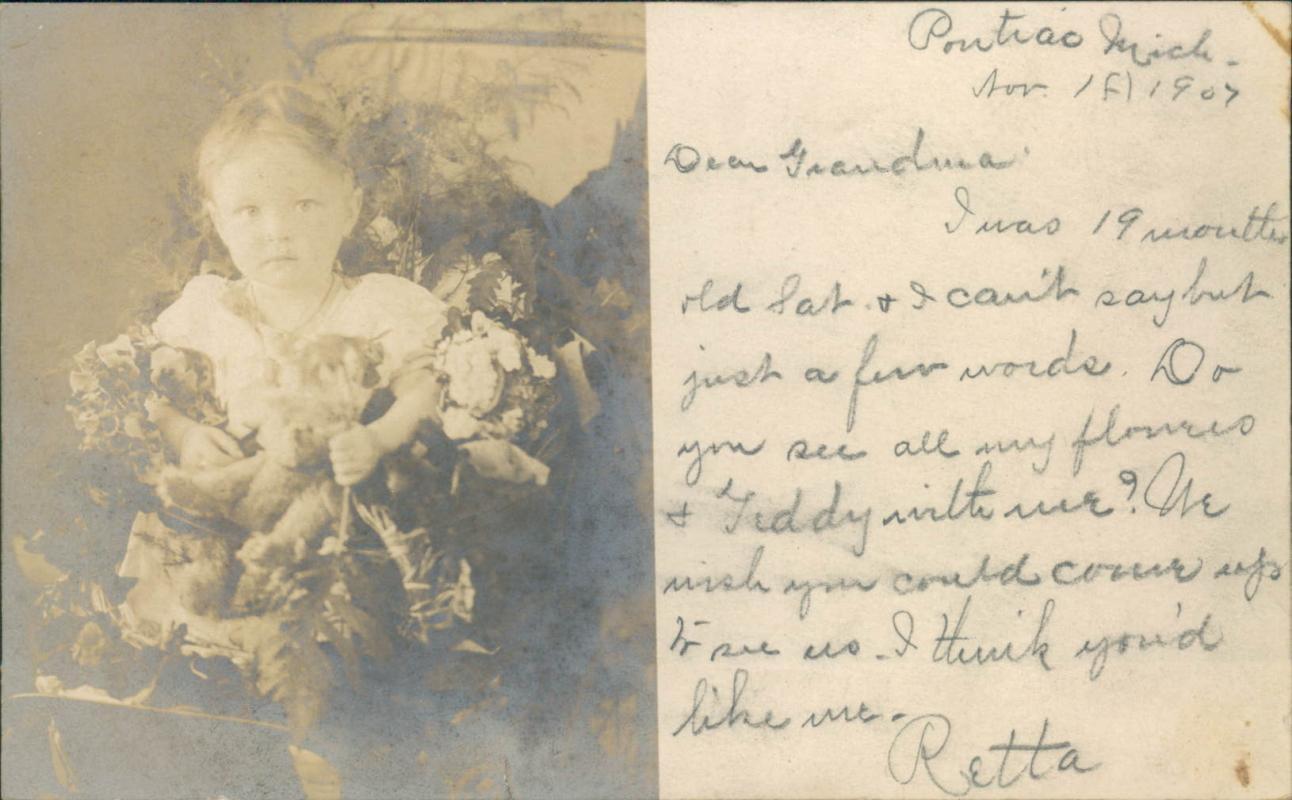 Pontiac Mich.
Nov. 18, 1907
Dear Grandma
I was 19 months
old Sat. & I can't say but
just a few words. Do
you see all my flowers
& Teddy with me? We
wish you could come up
to see us. I think you'd
like me.
Retta